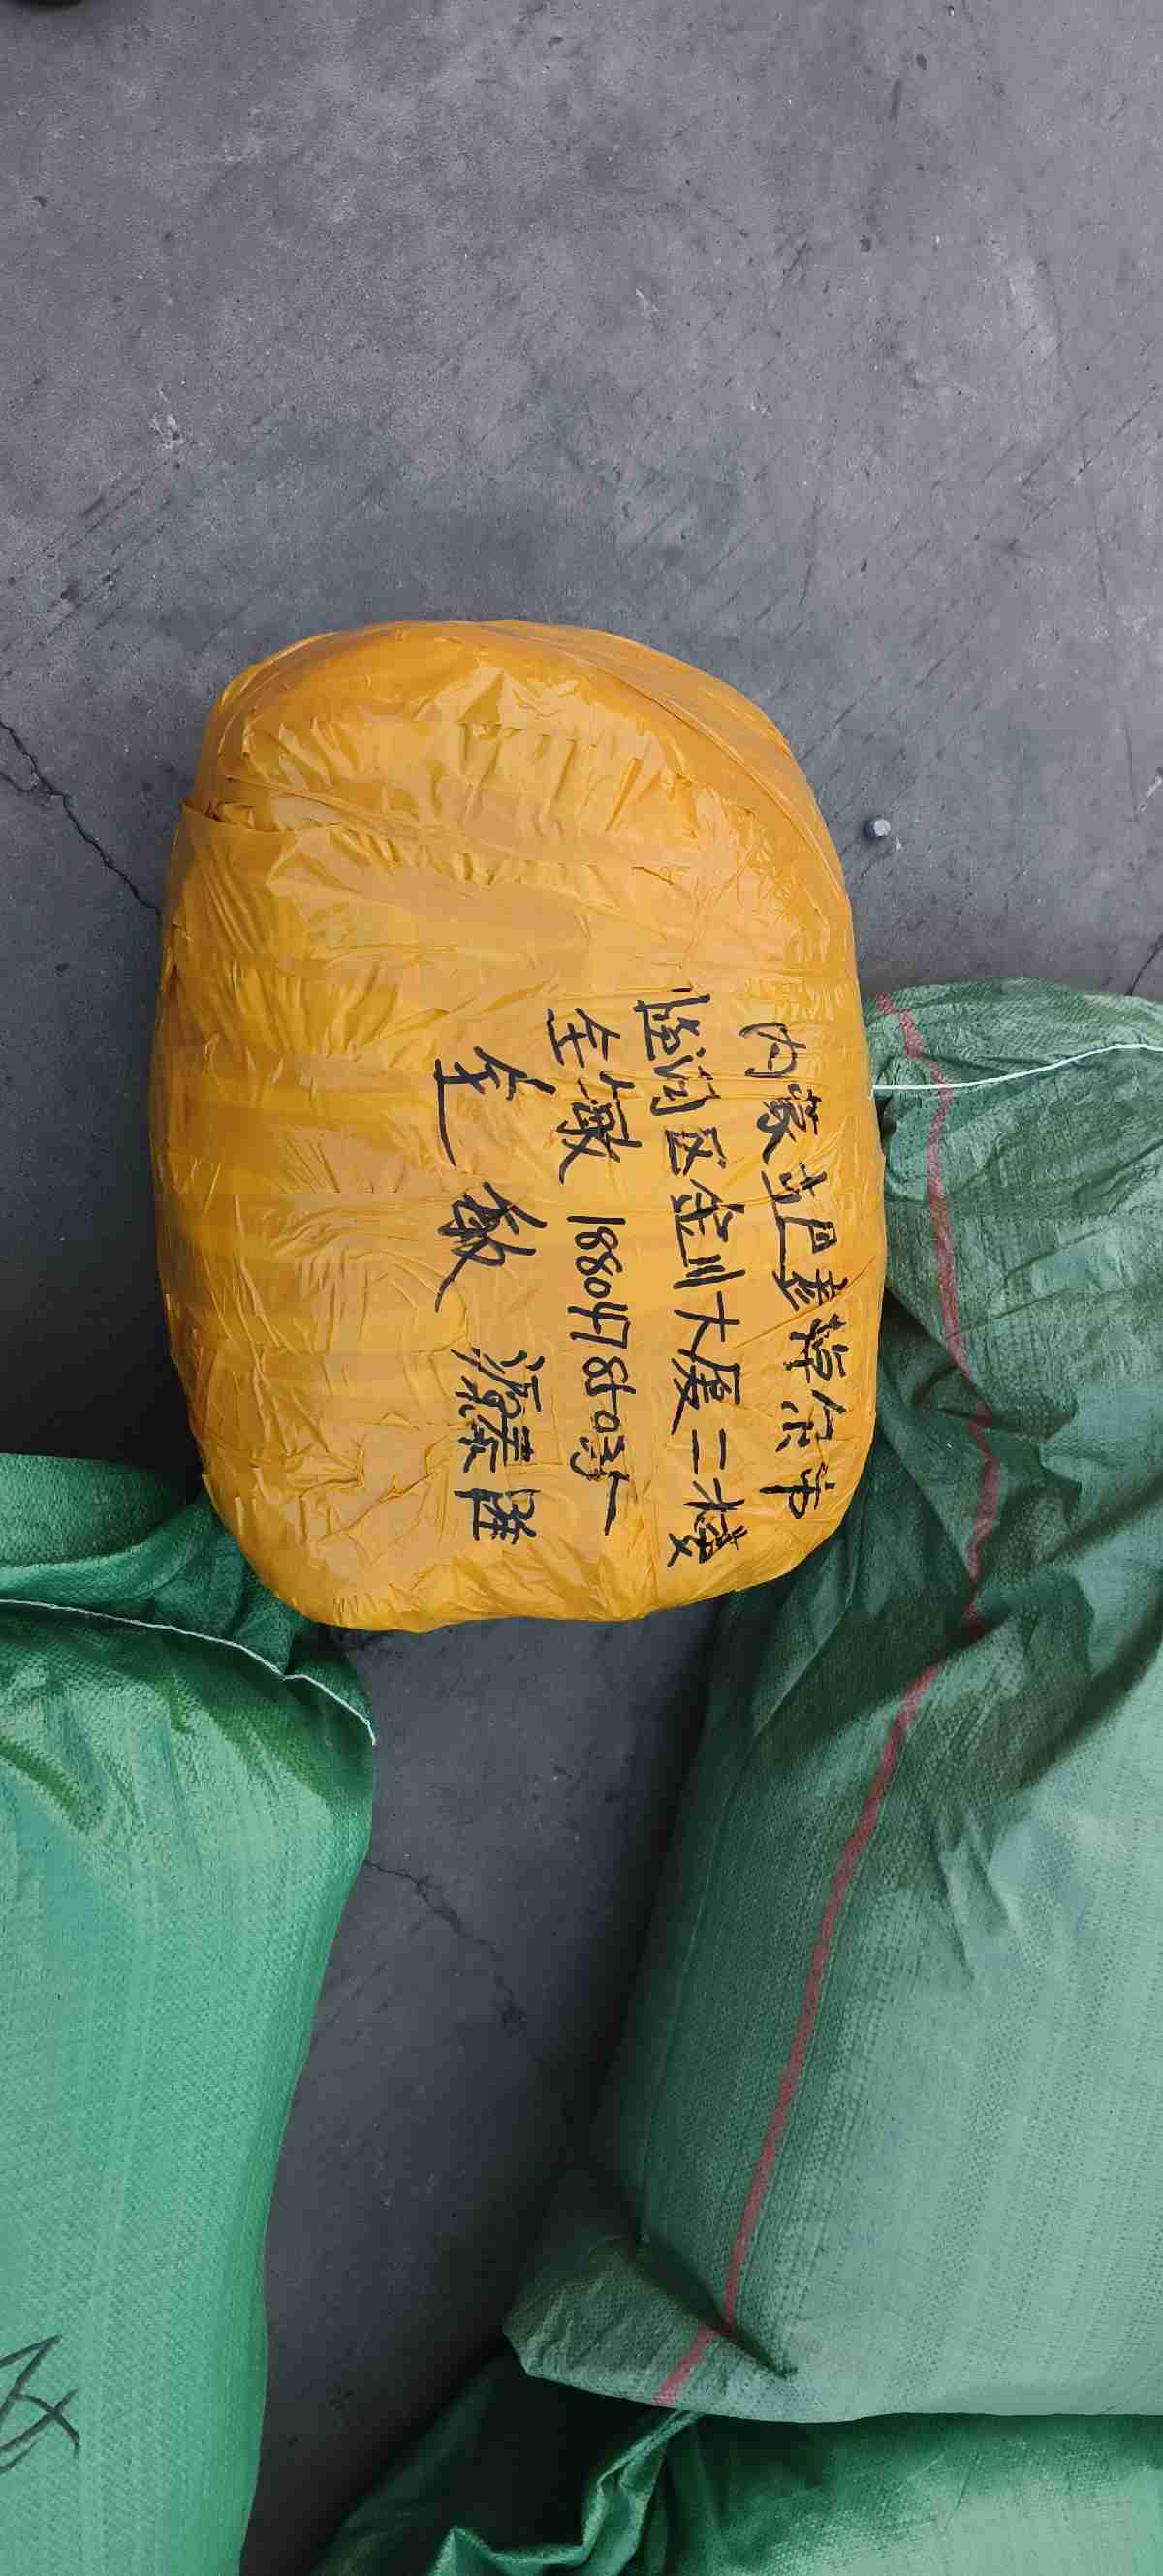 内蒙古巴彦淖尔市
临河区金川大厦二楼
18804785035
敏 源泰隆